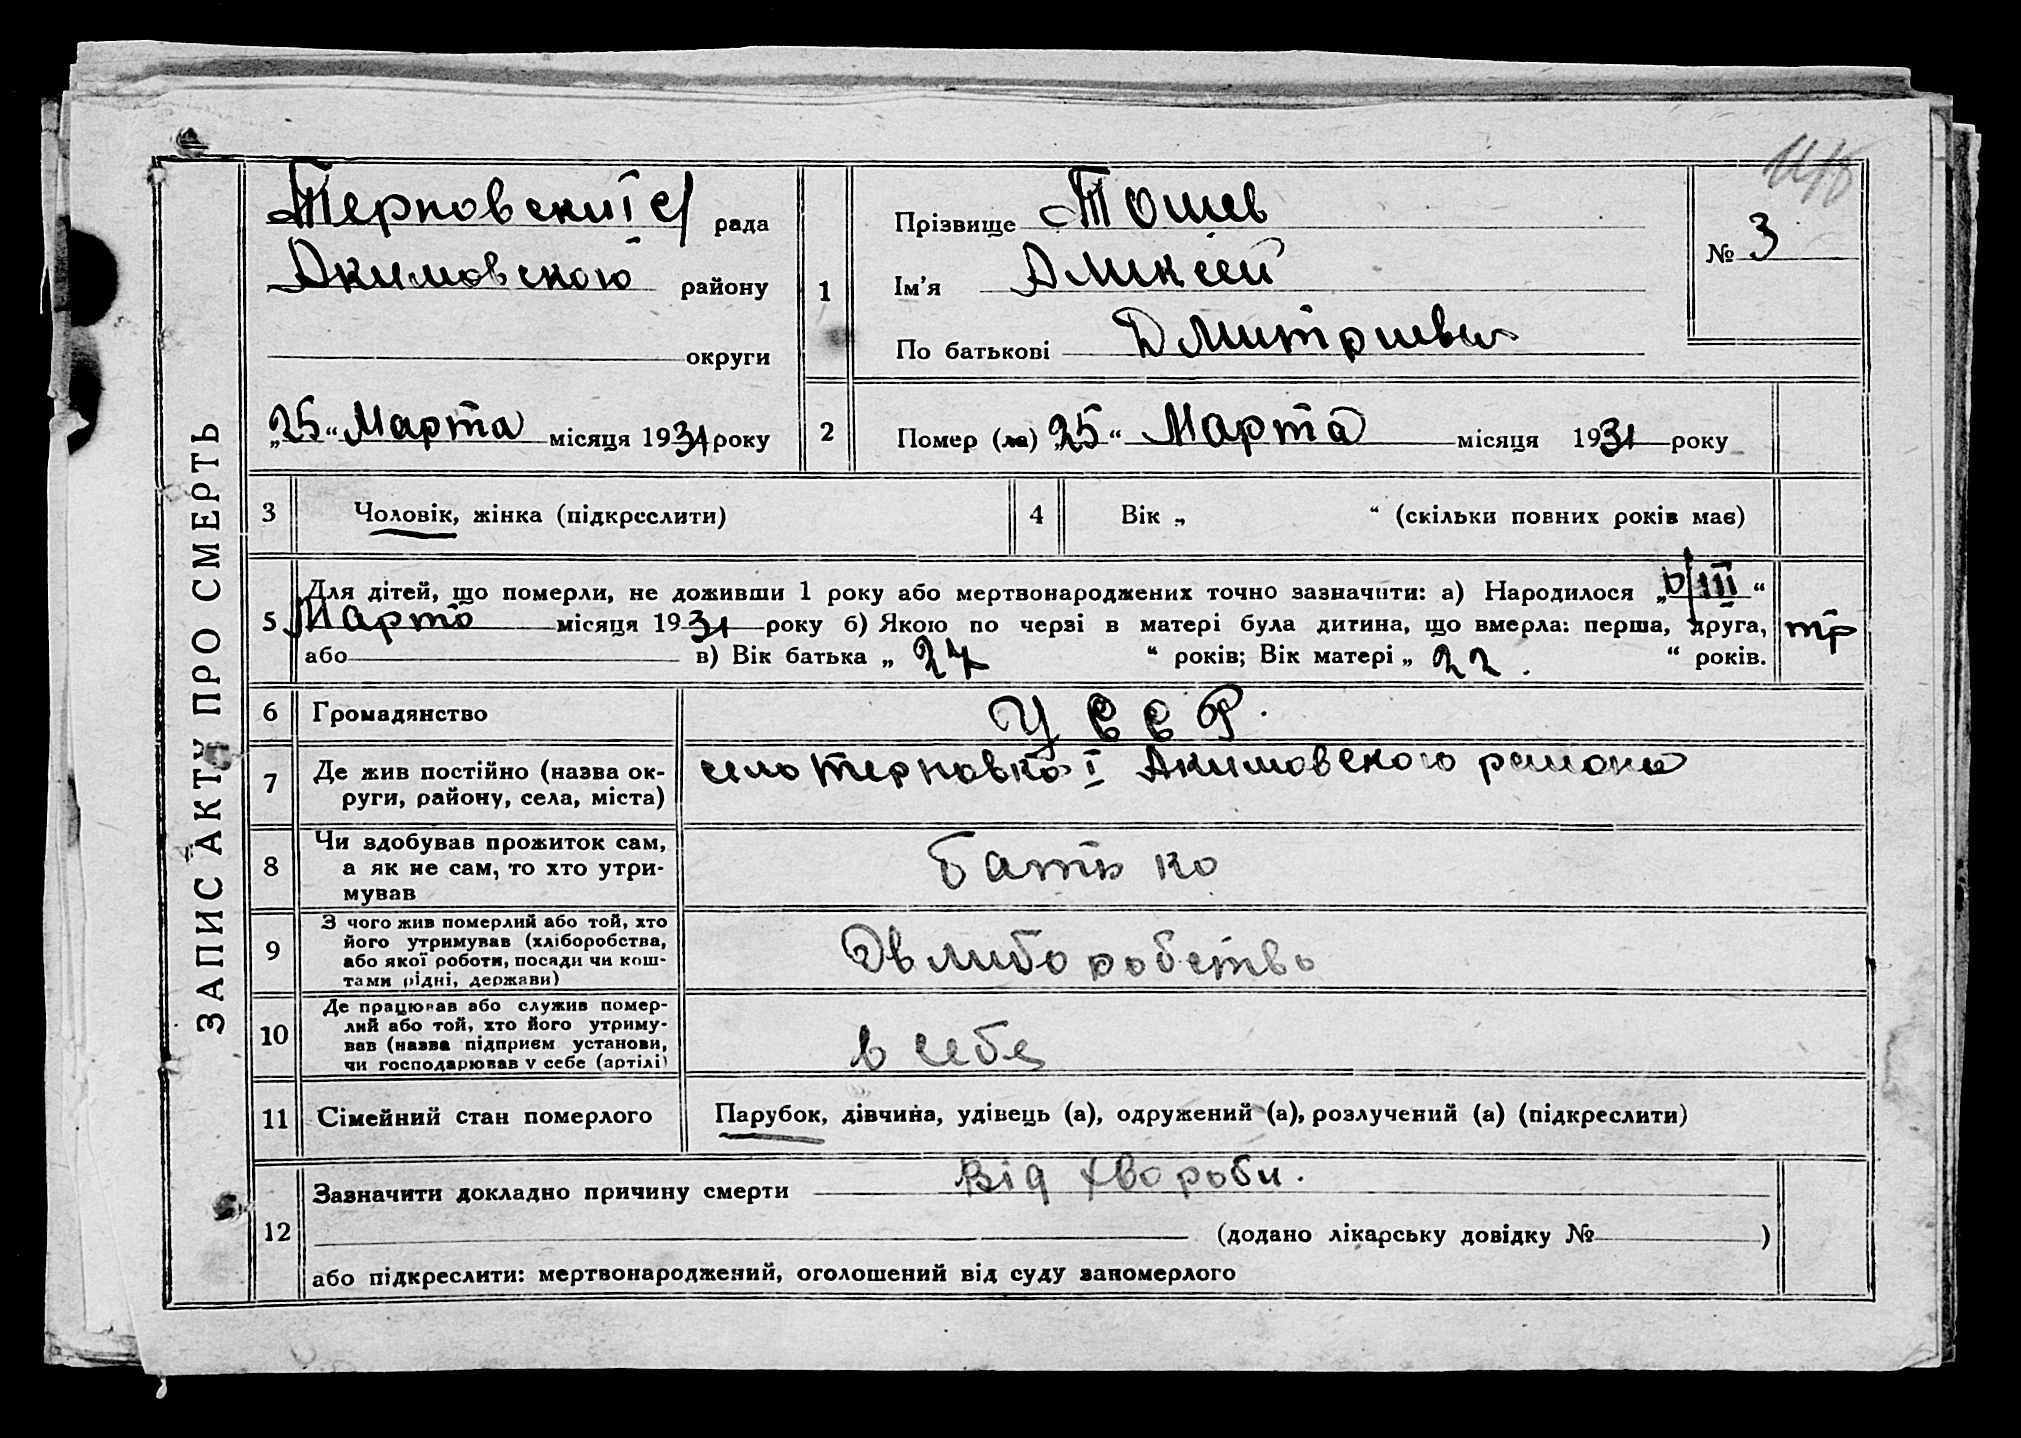 ЗАПИС АКТУ ПРО СМЕРТЬ
Терновскиї с/ рада
Акимовского району
округи
„25“ Марта місяця 1931 року
1
Прізвище Тошев
Ім'я Аликсей
По батькові Дмитриевич
№ 3
2
Помер (ла) „25“ Марта місяця 1931 року
3 Чоловік, жінка (підкреслити)
4 Вік „ “ (скільки повних років має)
5 Для дітей, що померли, не доживши 1 року або мертвонароджених точно зазначити: а) Народилося „ /III “
Марта місяця 1931 року б) Якою по черзі в матері була дитина, що вмерла: перша, друга, тр
або в) Вік батька „ 24 “ років; Вік матері „ 22 . “ років.
6 Громадянство УССР.
7 Де жив постійно (назва ок-
руги, району, села, міста)
село Терновка I Акимовского района
8 Чи здобував прожиток сам,
а як не сам, то хто утри-
мував
батько
9 З чого жив померлий або той, хто
його утримував (хліборобства,
або якої роботи, посади чи кош-
тами рідні, держави)
10 Де працював або служив помер-
лий або той, хто його утриму-
вав (назва підприєм установи,
чи господарював у себе (артілі)
в себе
11 Сімейний стан померлого Парубок, дівчина, удівець (а), одружений (а), розлучений (а) (підкреслити)
12 Зазначити докладно причину смерти Від хвороби.
(додано лікарську довідку № )
або підкреслити: мертвонароджений, оголошений від суду запомерлого